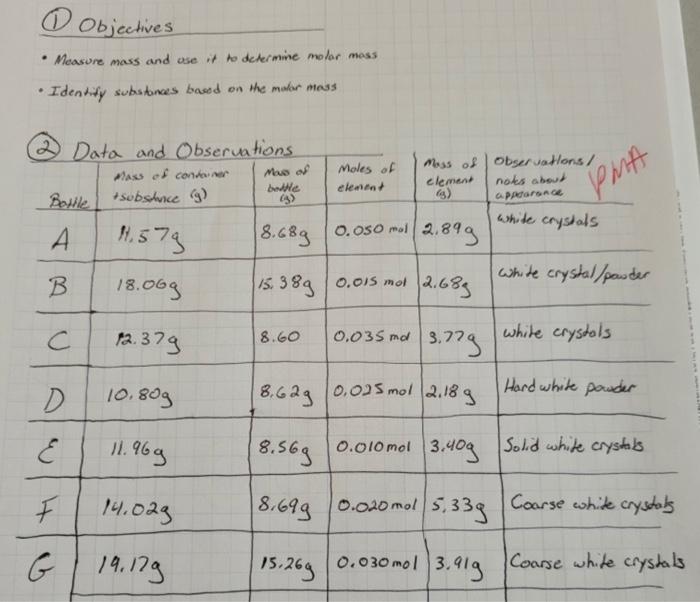 ① Objectives
• Measure mass and use it to determine molar mass
• Identify substances based on the molar mass
② Data and Observations
Bottle | Mass of container + substance (g) | Mass of bottle (g) | Moles of element | Mass of element (g) | Observations/ notes about appearance
PMA
A 11.57g 8.68g 0.050 mol 2.89g white crystals
B 18.06g 15.38g 0.015 mol 2.68g white crystal/powder
C 12.37g 8.60 0.035 mol 3.77g white crystals
D 10.80g 8.62g 0.025 mol 2.18g Hard white powder
E 11.96g 8.56g 0.010 mol 3.40g Solid white crystals
F 14.02g 8.69g 0.020 mol 5.33g Coarse white crystals
G 19.17g 15.26g 0.030 mol 3.91g Coarse white crystals